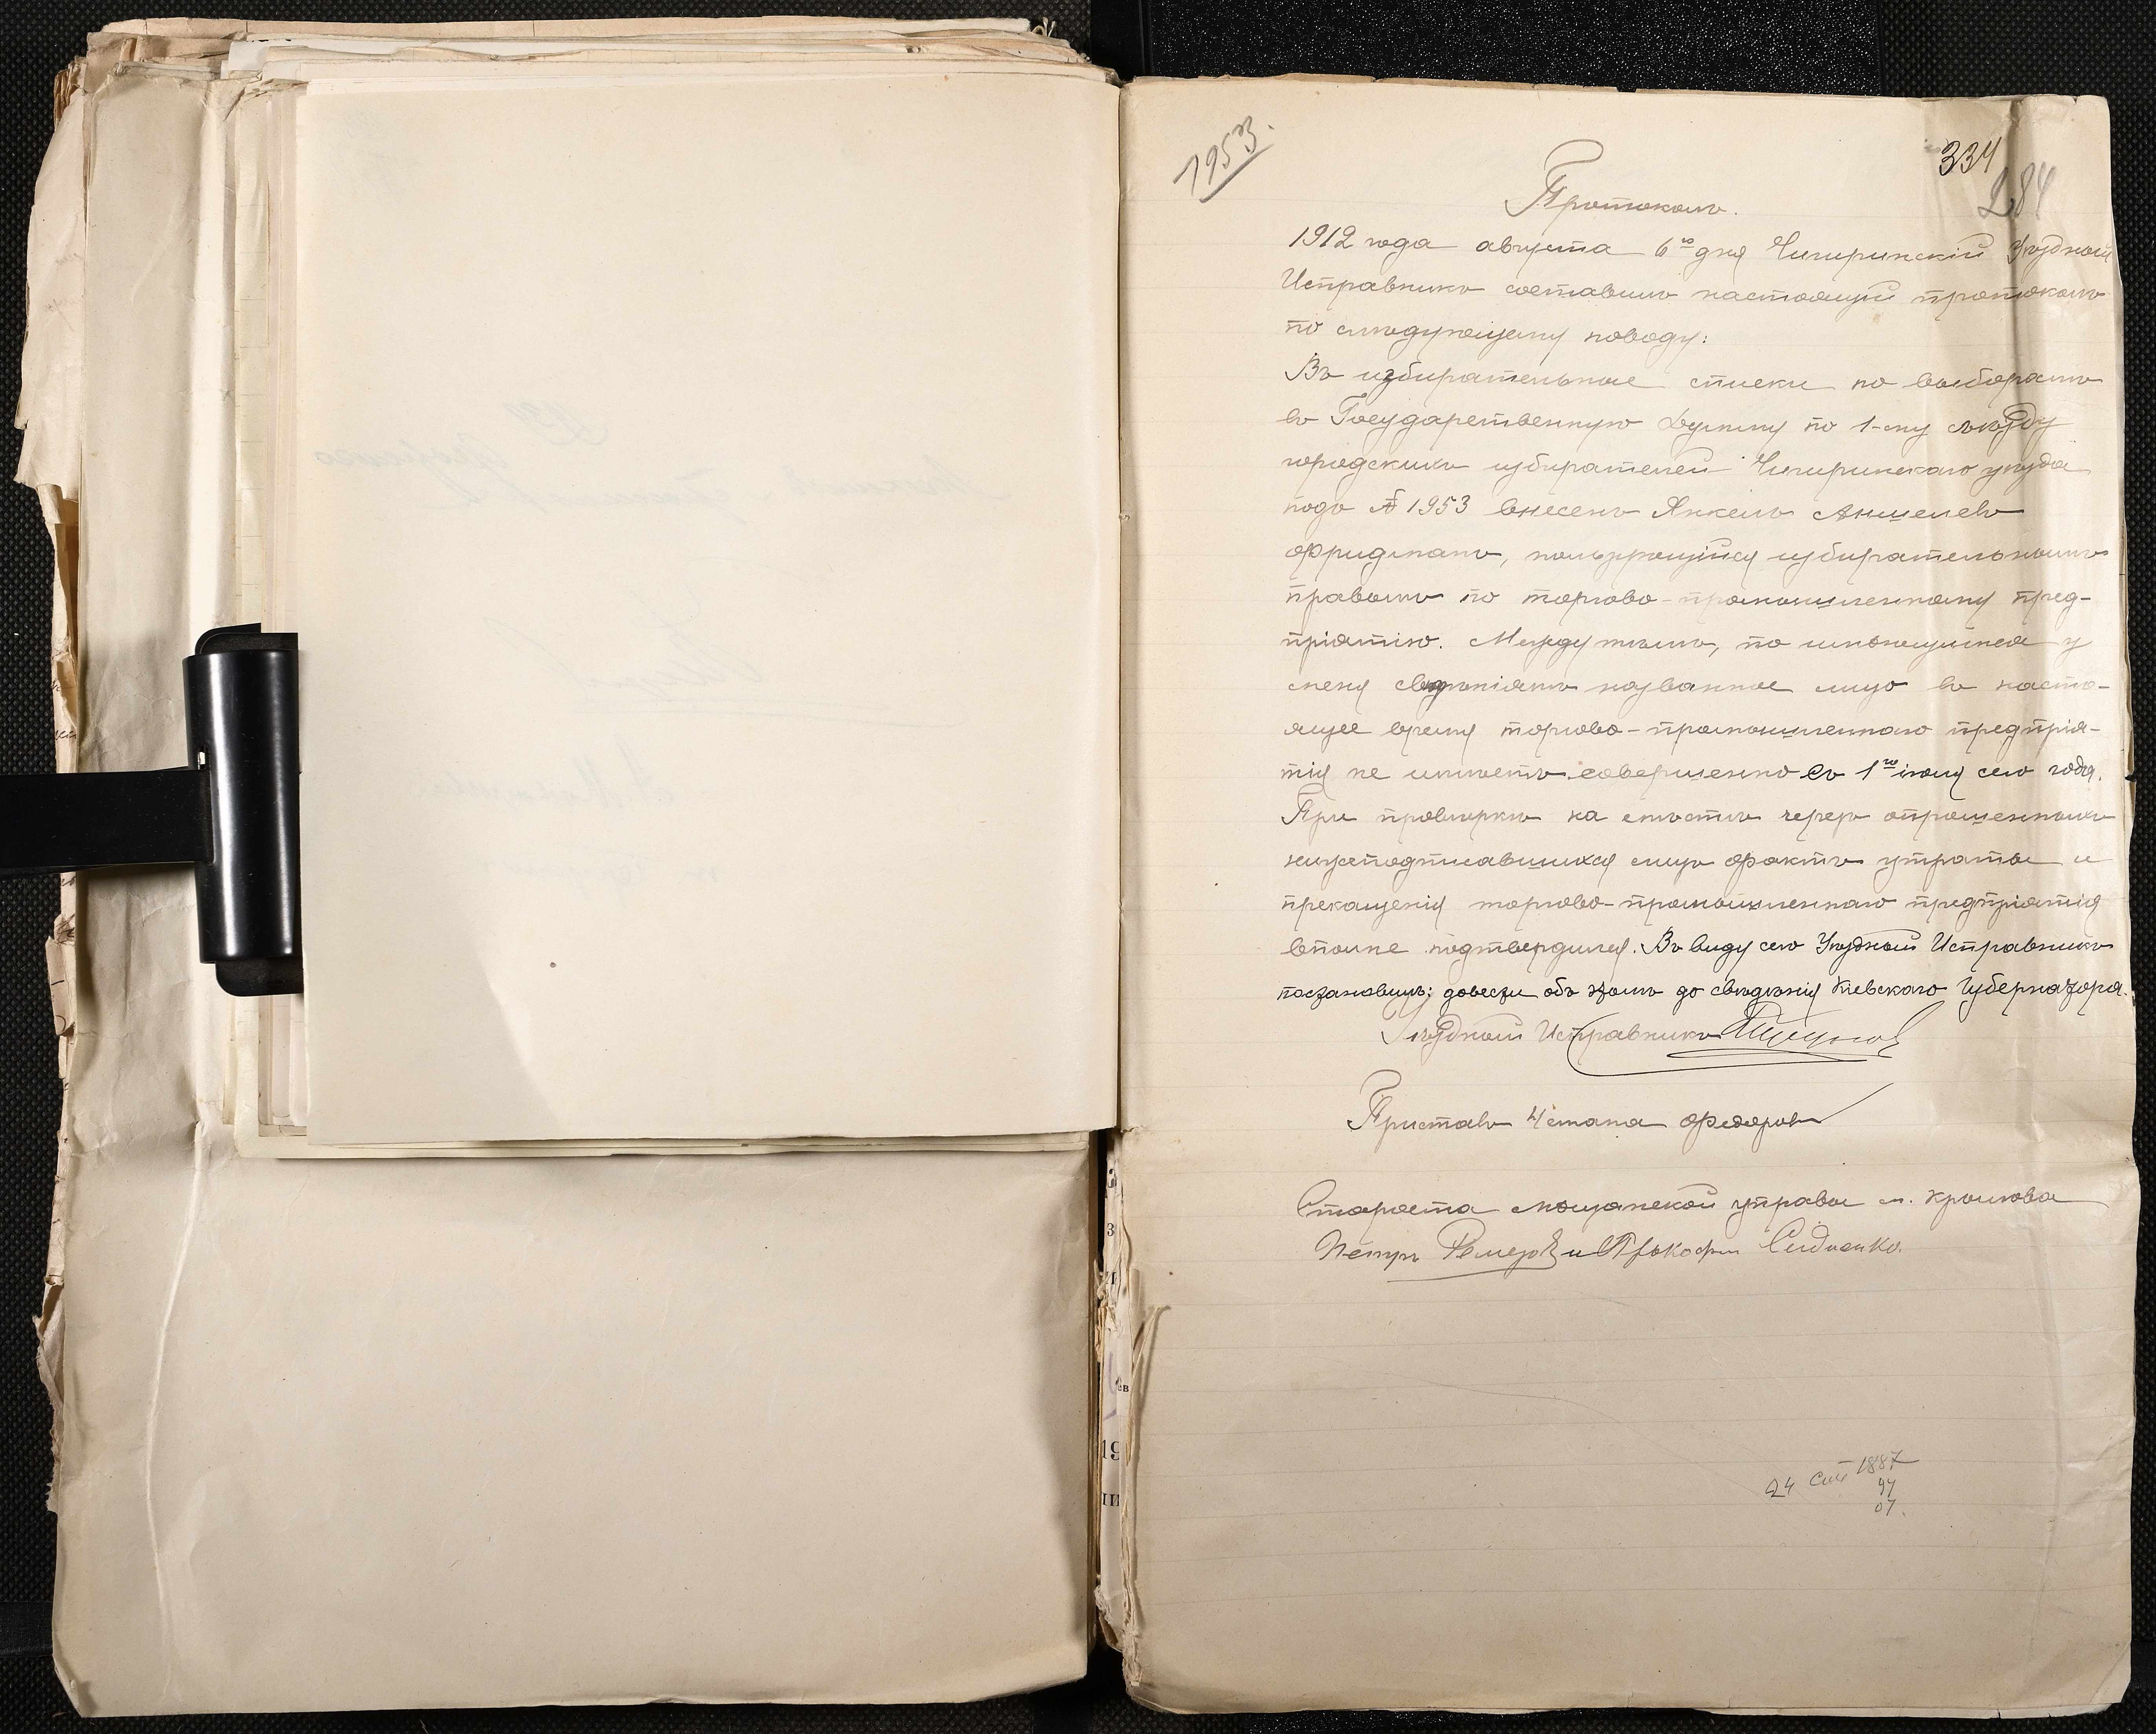 1953.
334
284
Протоколъ.
1912 года августа 6го дня Чигиринскій Уѣздный
Исправникъ составилъ настоящій протоколъ
по слѣдующему поводу:
Въ избирательные списки по выборамъ
въ Государственную Думу по 1-му съѣзду
городскихъ избирателей Чигиринскаго уѣзда
подъ № 1953 внесенъ Янкель Аншелевъ
Фридманъ, пользующійся избирательнымъ
правомъ по торгово-промышленному пред-
пріятію. Между тѣмъ, по имѣющимся у
меня свѣдѣніямъ названное лицо въ насто-
ящее время торгово-промышленнаго предпрія-
тія не имѣетъ совершенно съ 1го іюля сего года.
При провѣркѣ на мѣстѣ черезъ опрошенныхъ
нижеподписавшихся лицъ фактъ утраты и
прекащенія торгово-промышленнаго предпріятія
вполне подтвердился. Въ виду сего Уѣздный Исправникъ
постановилъ: довести объ этомъ до свѣдѣнія Кіевскаго Губернатора.
Уѣздный Исправникъ
Приставъ 4 стана Федоровъ
Староста мѣщанской управы м. Крылова
Петръ и Прокофий
24 1887
97
07.